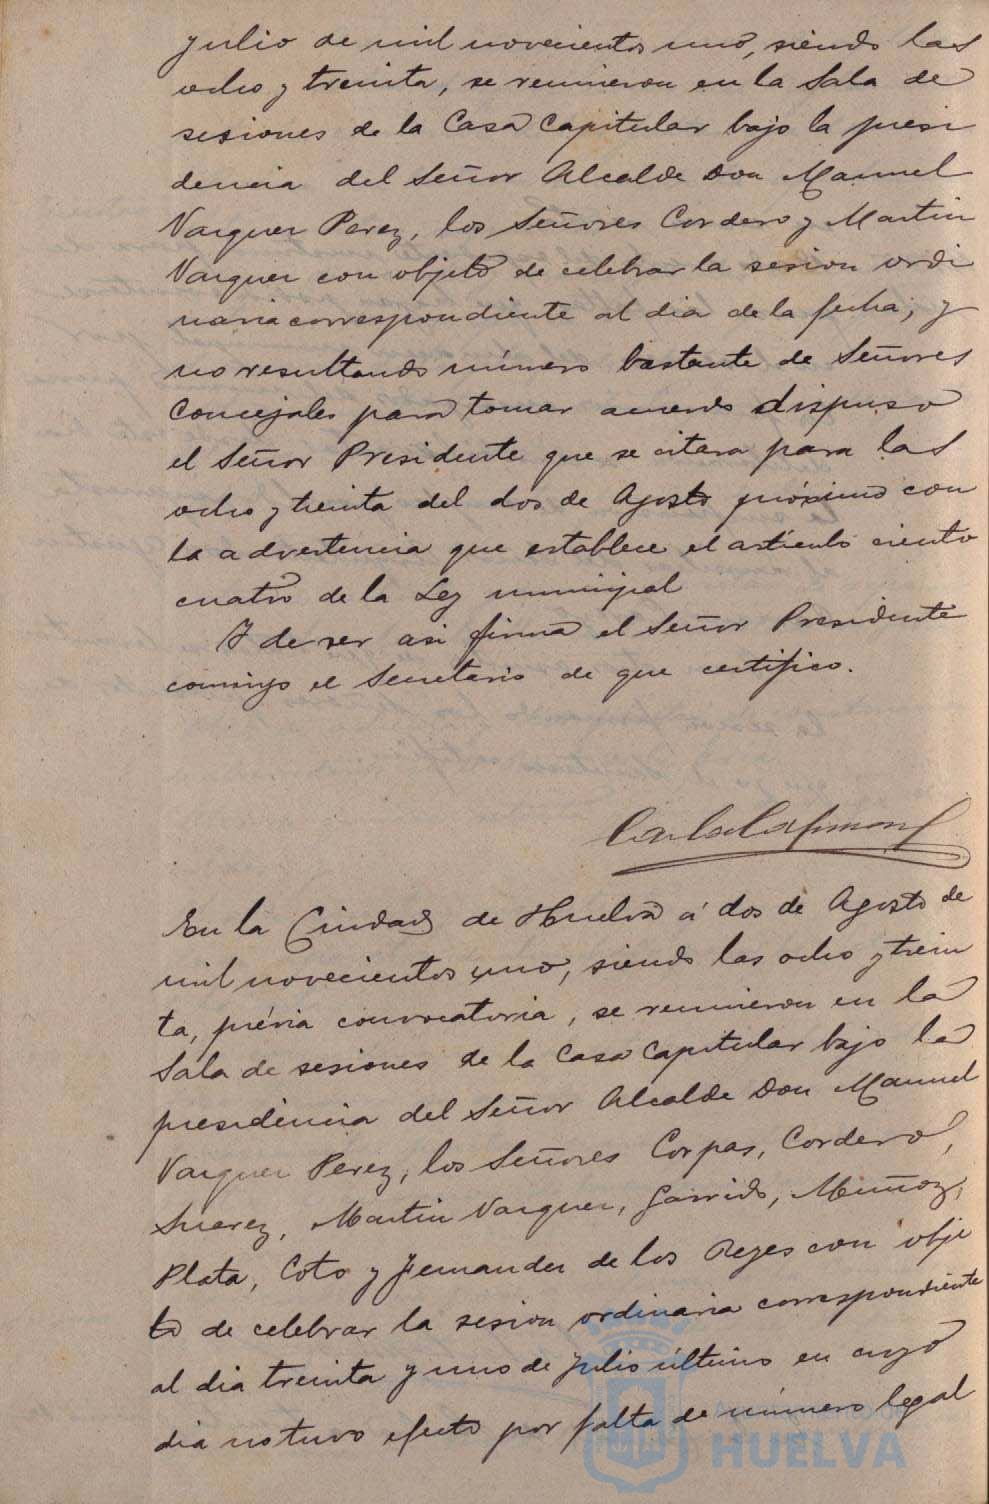 Julio de mil novecientos uno, siendo las
ocho y treinta, se reunieron en la Sala de
sesiones de la Casa Capitular bajo la presi
dencia del Señor Alcalde Don Manuel
Vazquez Perez, los Señores Cordero y Martin
Vazquez con objeto de celebrar la sesion ordi
naria correspondiente al dia de la fecha; y
no resultando número bastante de Señores
Concejales para tomar acuerdo dispuso
el Señor Presidente que se citara para las
ocho y treinta del dos de Agosto próximo con
la advertencia que establece el artículo ciento
cuatro de la Ley municipal
Y de ser asi firma el Señor Presidente
conmigo el Secretario de que certifico.
En la Ciudad de Huelva á dos de Agosto de
mil novecientos uno, siendo las ocho y trein
ta, prévia convocatoria, se reunieron en la
Sala de sesiones de la Casa Capitular bajo la
presidencia del Señor Alcalde Don Manuel
Vazquez Perez, los Señores Corpas, Cordero,
Suarez, Martin Vazquez, Garrido, Muñoz,
Plata, Coto y Fernandez de los Reyes con obje
to de celebrar la sesion ordinaria correspondiente
al dia treinta y uno de Julio último en cuyo
dia no tuvo efecto por falta de número legal
Ayuntamiento de
HUELVA